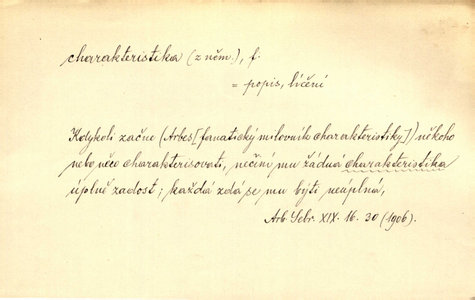 charakteristika (z něm.), f.
= popis, líčení
Kdykoli začne (Arbes [fanatický milovník charakteristiky]) někoho
nebo něco charakterisovati, nečiní mu žádná charakteristika
úplně zadost; každá zdá se mu býti neúplná,
Arb. Sebr. XIX. 16. 30 (1906).